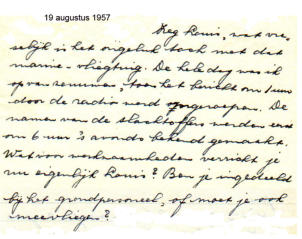 19 augustus 1957
Zeg Louis, wat vre-
selijk is het ongeluk toch met dat
marine-vliegtuig. De hele dag was ik
op van zenuwen, toen het bericht om 1 uur
door de radio werd omgeroepen. De
namen van de slachtoffers werden eerst
om 6 uur 's avonds bekend gemaakt.
Wat voor werkzaamheden verricht je
nu eigenlijk Louis? Ben je ingedeeld
bij het grondpersoneel, of moet je ook
meevliegen?